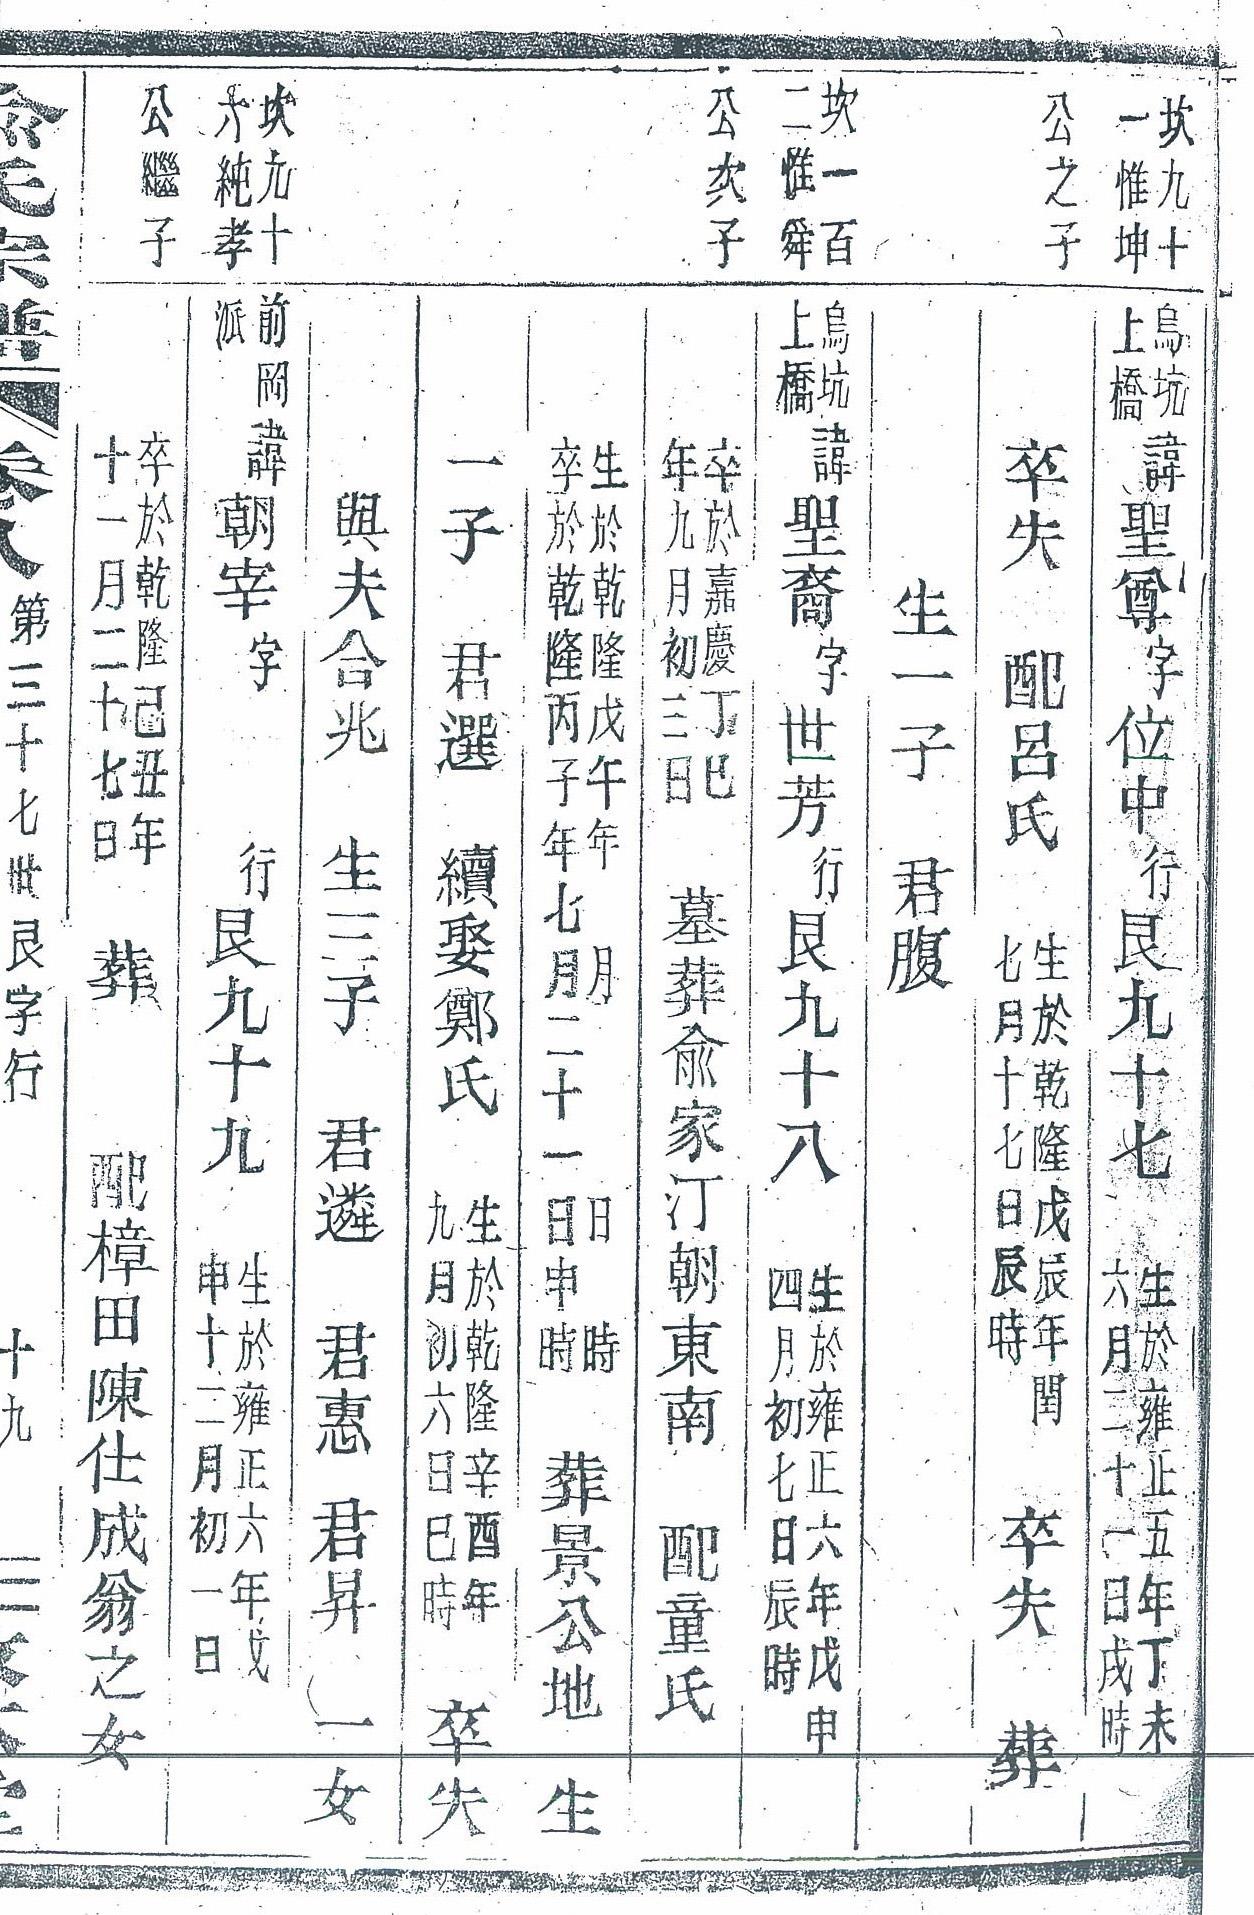 坎九十
一惟坤
公之子
烏坑
上橋
諱聖尊字位中行艮九十七
生於雍正五年丁未
六月二十一日戌時
卒失 配呂氏
生於乾隆戊辰年閏
七月十七日辰時
卒失 葬
生一子 君腹
坎一百
二惟舜
公次子
烏坑
上橋
諱聖裔字世芳行艮九十八
生於雍正六年戊申
四月初七日辰時
卒於嘉慶丁巳
年九月初三日
墓葬俞家汀朝東南 配童氏
生於乾隆戊午年 月 日 時
卒於乾隆丙子年七月二十一日申時
葬景公地 生
一子 君選 續娶鄭氏
生於乾隆辛酉年
九月初六日巳時
卒失
與夫合兆 生三子 君遴 君惠 君昇 一女
坎九十
六純孝
公繼子
前岡
派
諱朝宰字 行艮九十九
生於雍正六年戊
申十二月初一日
卒於乾隆己丑年
十一月二十七日
葬 配樟田陳仕成翁之女
俞氏宗譜 卷八 第三十七世艮字行 十九